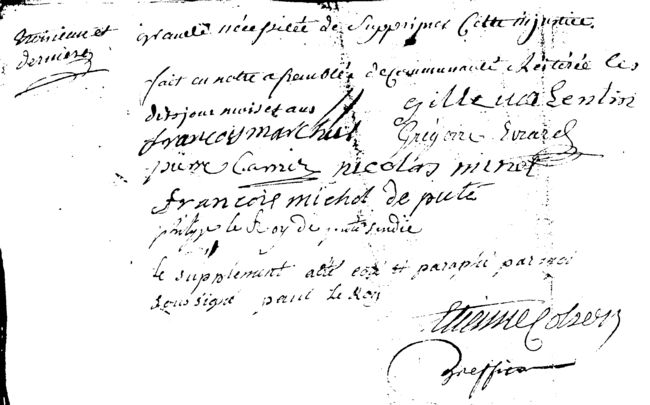 troisieme et
derniere
grande nécessité de supprimer Cette injustice.
fait en notre assemblée de Communauté Réiterée les
dits jour mois et ans
gille valentin
francois marchal
Grégoire Evrard
pierre Carrier nicolas minel
francois michel député
philippe le Roy de puté sindic
le supplément a été coté et paraphé par moi
soussigné paul le Roy
Etienne
Greffier